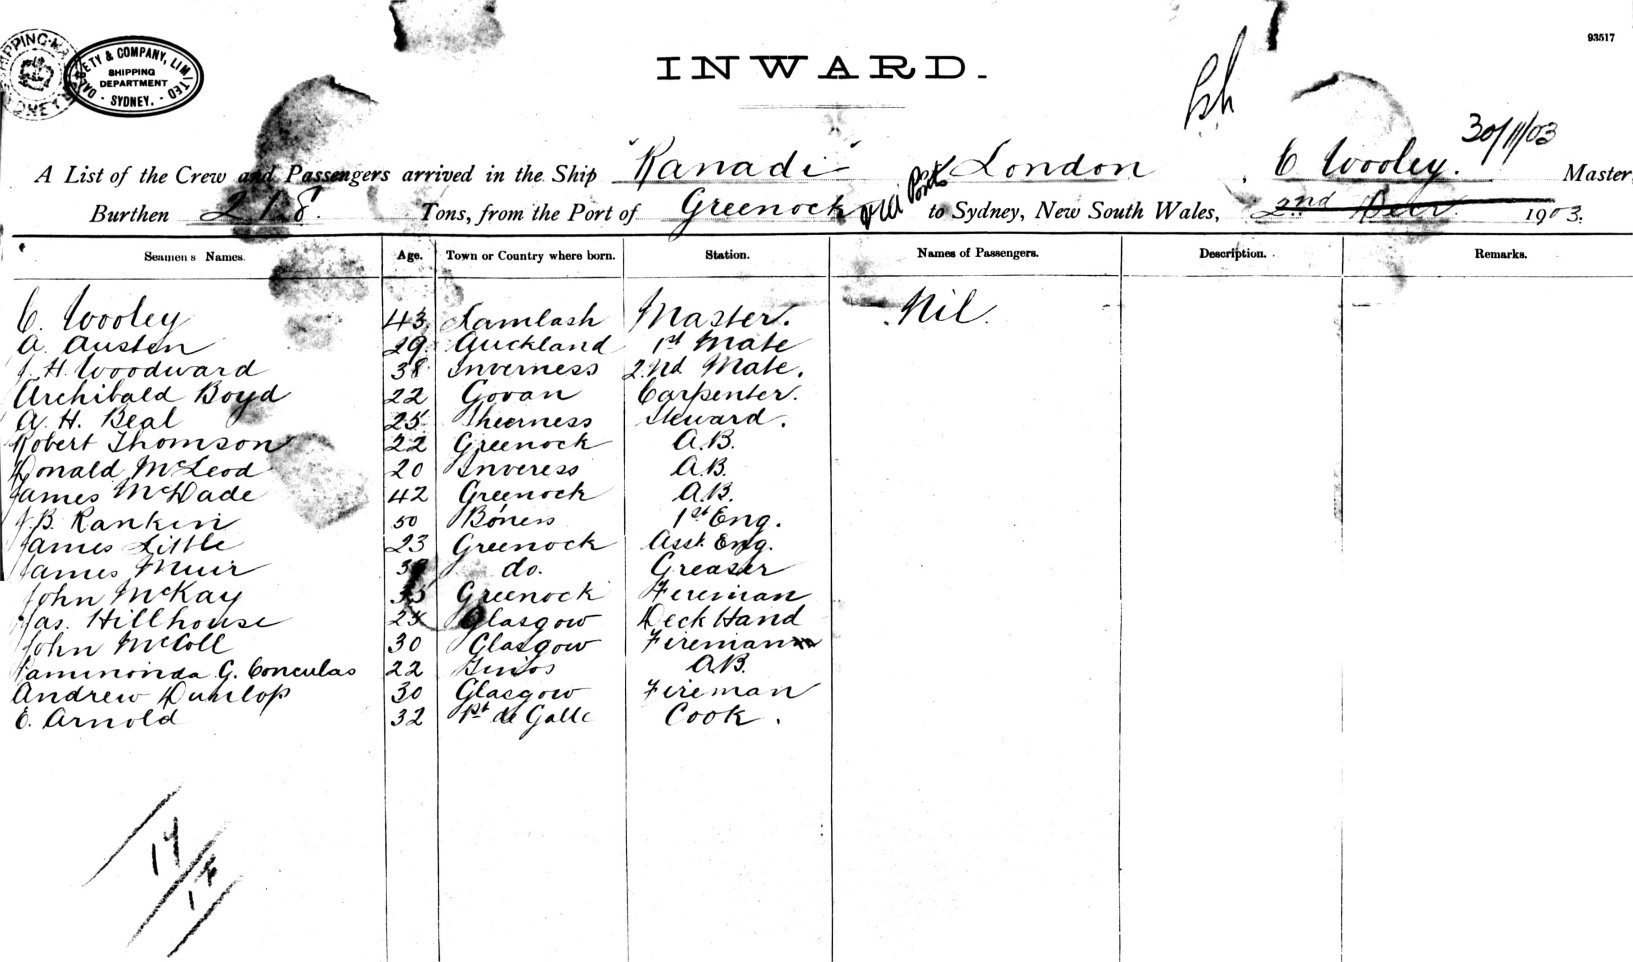 93517
DALGETY & COMPANY, LIMITED
SHIPPING
DEPARTMENT
SYDNEY.
INWARD.
30/11/03
A List of the Crew and Passengers arrived in the Ship "Kanadi" London, C Wooley. Master,
Burthen 218. Tons, from the Port of Greenock via Ports to Sydney, New South Wales, 2nd Decr 1903.
Seamens Names. Age. Town or Country where born. Station. Names of Passengers. Description. Remarks.
C. Wooley 43 Lamlash Master. Nil.
A. Austen 29 Auckland 1st Mate
J. H. Woodward 38 Inverness 2nd Mate.
Archibald Boyd 22 Govan Carpenter.
A. H. Beal 25 Sheerness Steward.
Robert Thomson 22 Greenock A.B.
Donald McLeod 20 Inveress A.B.
James McDade 42 Greenock A.B.
J. B. Rankin 50 Bo'ness 1st Eng.
James Little 23 Greenock Asst. Eng.
James Muir do. Greaser
John McKay Greenock Fireman
Jas. Hillhouse 25 Glasgow Deck Hand
John McColl 30 Glasgow Fireman
G. 22 A.B.
Andrew Dunlop 30 Glasgow Fireman
E. Arnold 32 Pt de Galle Cook.
17